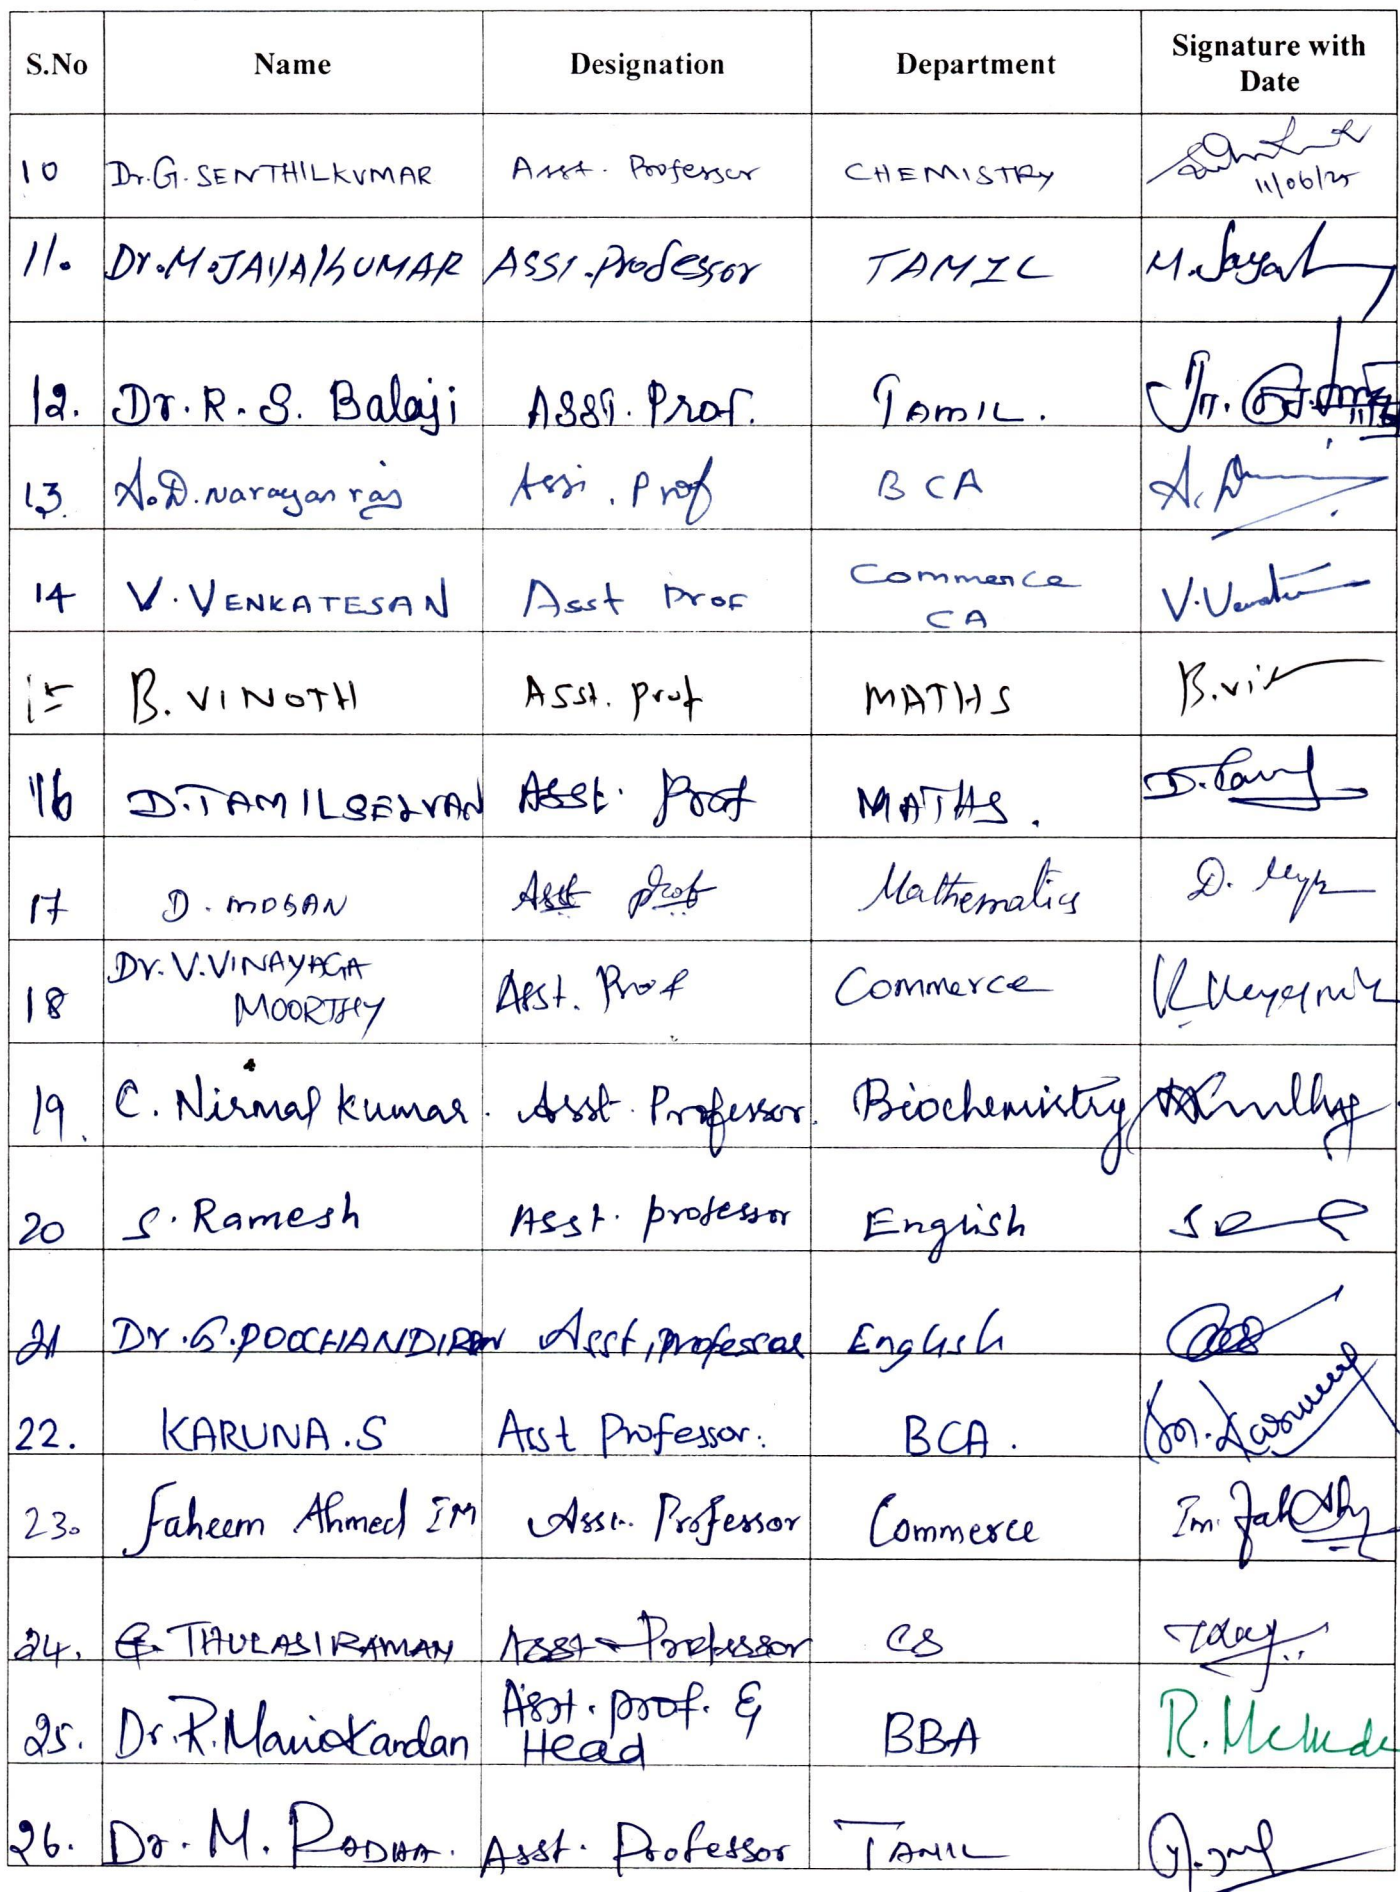 S.No Name Designation Department Signature with
Date
10 Dr.G.SENTHILKUMAR Asst. Professor CHEMISTRY
11/06/25
11. Dr.M.JAYAKUMAR ASST.Professor TAMIL M.Jayak
12. Dr.R.S. Balaji ASST. Prof. TAMIL.
13. A.D.Narayanraj Assi. Prof BCA A.D
14 V.VENKATESAN Asst Prof Commerce
CA
V.Venkat
15 B.VINOTH Asst. prof MATHS B.vi
16 D.TAMILSELVAN Asst. Prof MATHS.
17 D.MOSAN Asst Prof Mathematics
18 Dr.V.VINAYAGA
MOORTHY
Asst. Prof Commerce
19. C.Nirmal kumar. Asst. Professor. Biochemistry
20 S.Ramesh Asst. professor English
21 Dr.G.POOCHANDIRAN Asst, professor English
22. KARUNA.S Asst Professor. BCA.
23. Faheem Ahmed IM Asst. Professor Commerce
24. G. THULASIRAMAN Asst Professor CS
25. Dr.R.Manikandan Asst. prof. &
Head
BBA
26. Dr. M. RADHA. Asst. Professor TAMIL